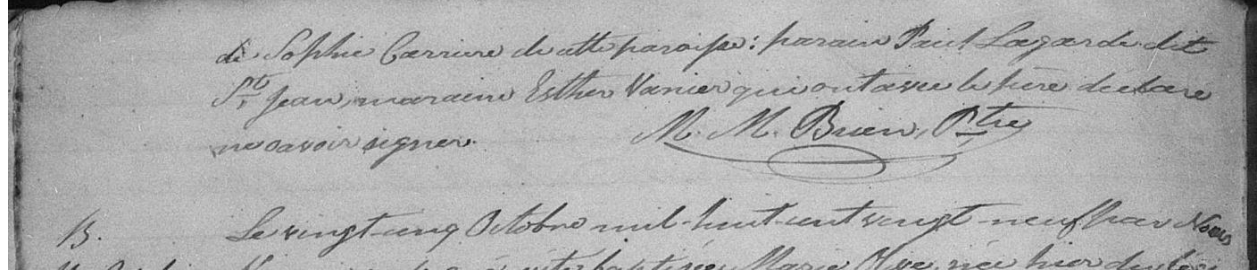 de Sophie Carriere de cette paroisse: parain Paul Lagarde dit
St. Jean, maraine Esther Vanier qui ont avec le père declaré
ne savoir signer. M. M. Brien, Ptre
B. Le vingt-cinq Octobre mil-huit-cent vingt-neuf par Nous
été baptisée Marie née hier